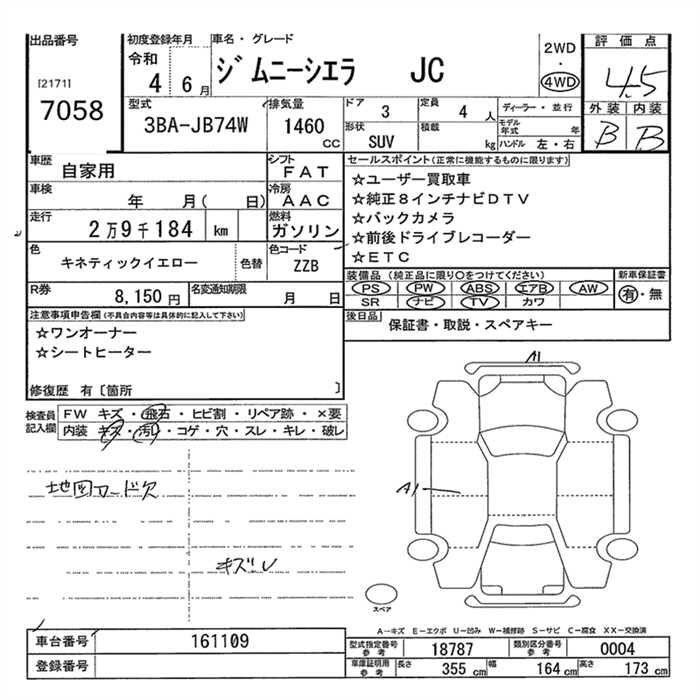 出品番号
[2171]
7058
初度登録年月
令和
4 6月
車名・グレード
ジムニーシエラ JC
2WD
・
4WD
評価点
4.5
外装 内装
B B
型式
3BA-JB74W
排気量
1460
CC
ドア 3
定員 4 人
形状 SUV
積載 kg
ディーラー・並行
モデル年式 年
ハンドル 左・右
車歴 自家用
シフト FAT
車検 年 月( 日)
冷房 AAC
走行 2万9千184 km
燃料 ガソリン
色 キネティックイエロー 色替
色コード ZZB
R券 8,150円
名変通知期限 月 日
セールスポイント(正常に機能するものに限ります)
☆ユーザー買取車
☆純正8インチナビDTV
☆バックカメラ
☆前後ドライブレコーダー
☆ETC
装備品(純正品に限り〇をつけてください)
新車保証書
PS PW ABS エアB AW
有・無
SR ナビ TV カワ
後日品 保証書・取説・スペアキー
注意事項申告欄(不具合内容等は具体的に記入して下さい)
☆ワンオーナー
☆シートヒーター
修復歴 有〔箇所 〕
検査員記入欄
FW キズ・飛石・ヒビ割・リペア跡・×要
内装 キズ・汚れ・コゲ・穴・スレ・キレ・破レ
地図カード欠
キズレ
A1
A1
スペア
A―キズ E―エクボ U―凹み W―補修跡 S―サビ C―腐食 XX―交換済
車台番号 161109
登録番号
型式指定番号参考 18787
類別区分番号参考 0004
車庫証明用参考 長さ 355 cm 幅 164 cm 高さ 173 cm